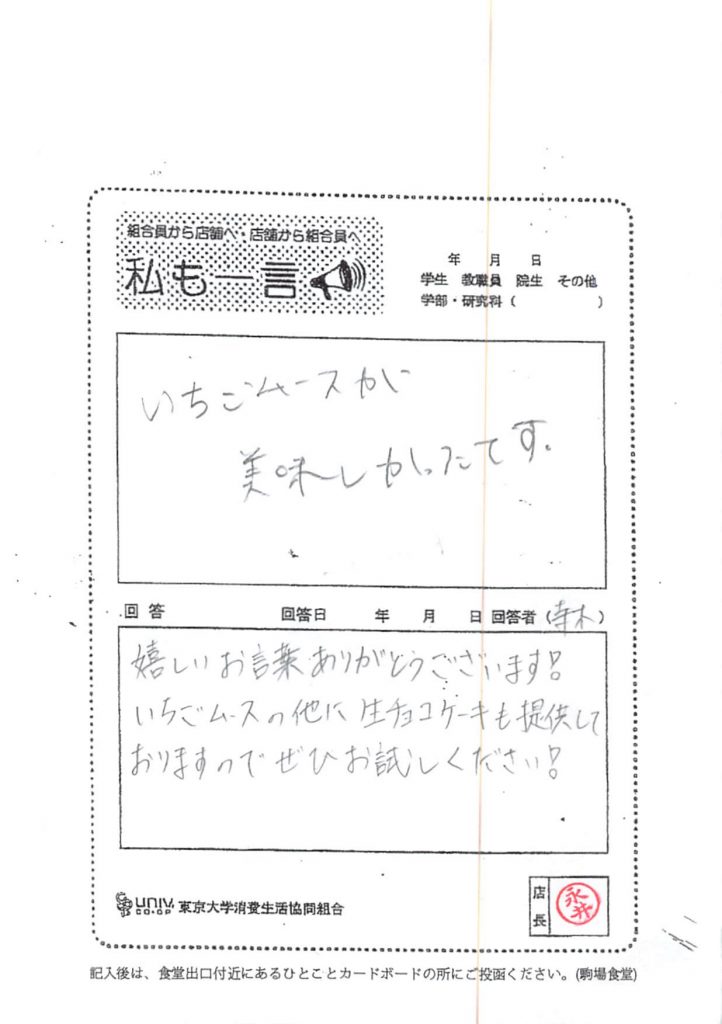 組合員から店舗へ・店舗から組合員へ
私も一言
年 月 日
学生 教職員 院生 その他
学部・研究科( )
いちごムースが
美味しかったてす。
回答 回答日 年 月 日 回答者(寺木)
嬉しいお言葉ありがとうございます!
いちごムースの他に生チョコケーキも提供して
おりますのでぜひお試しください!
UNIV. CO-OP 東京大学消費生活協同組合
店長
永井
記入後は、食堂出口付近にあるひとことカードボードの所にご投函ください。(駒場食堂)